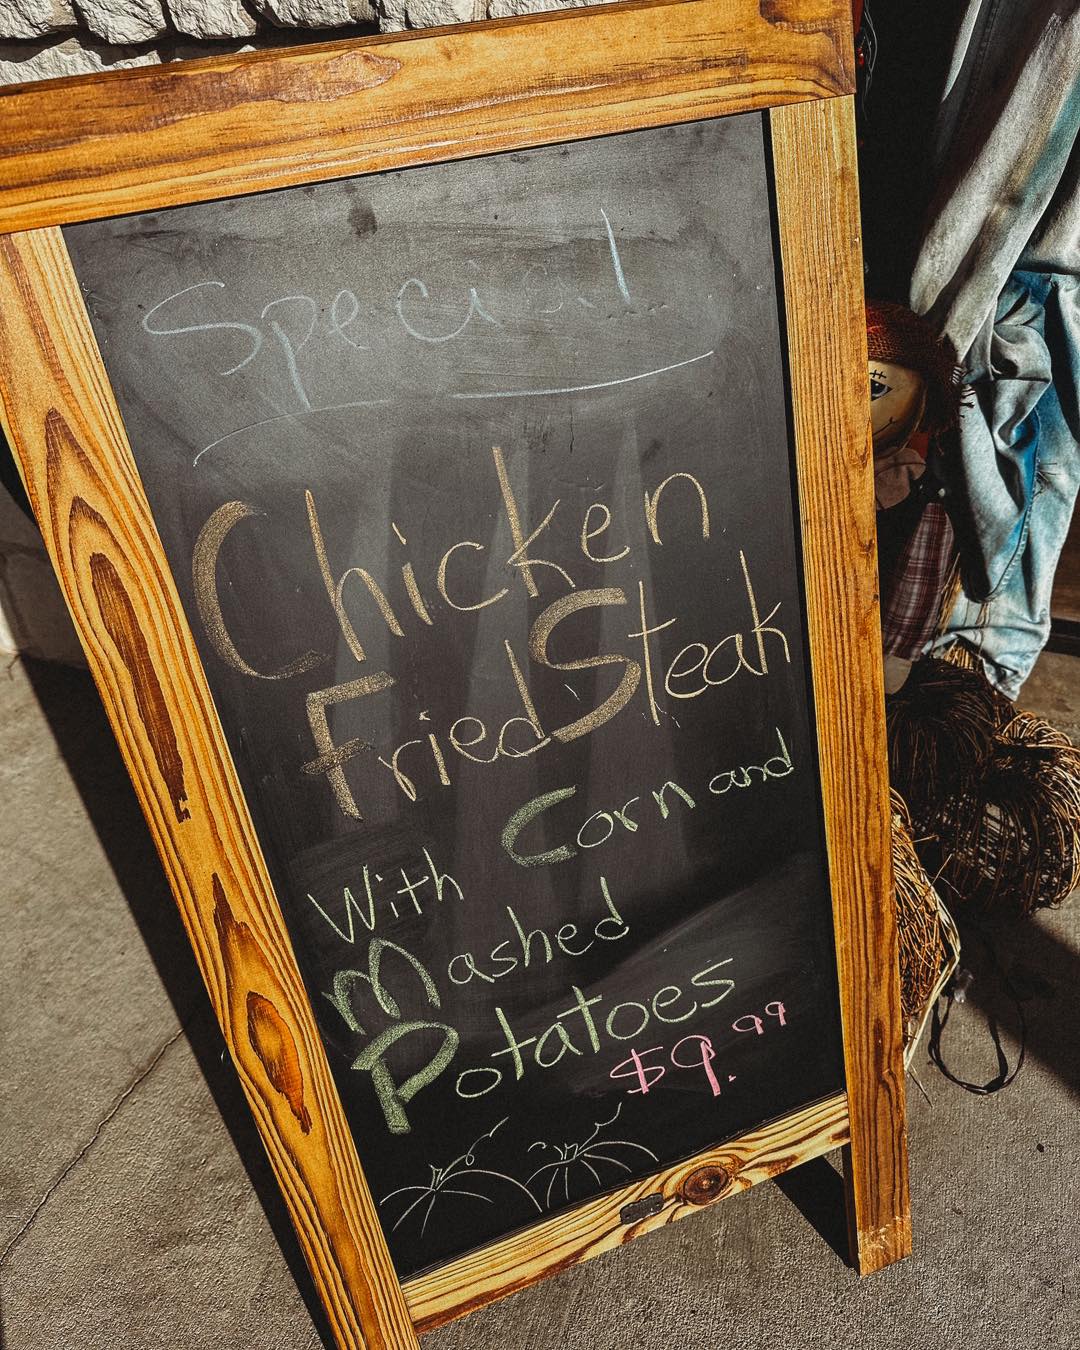 Special
Chicken
Fried Steak
With Corn and
Mashed
Potatoes
$9.99